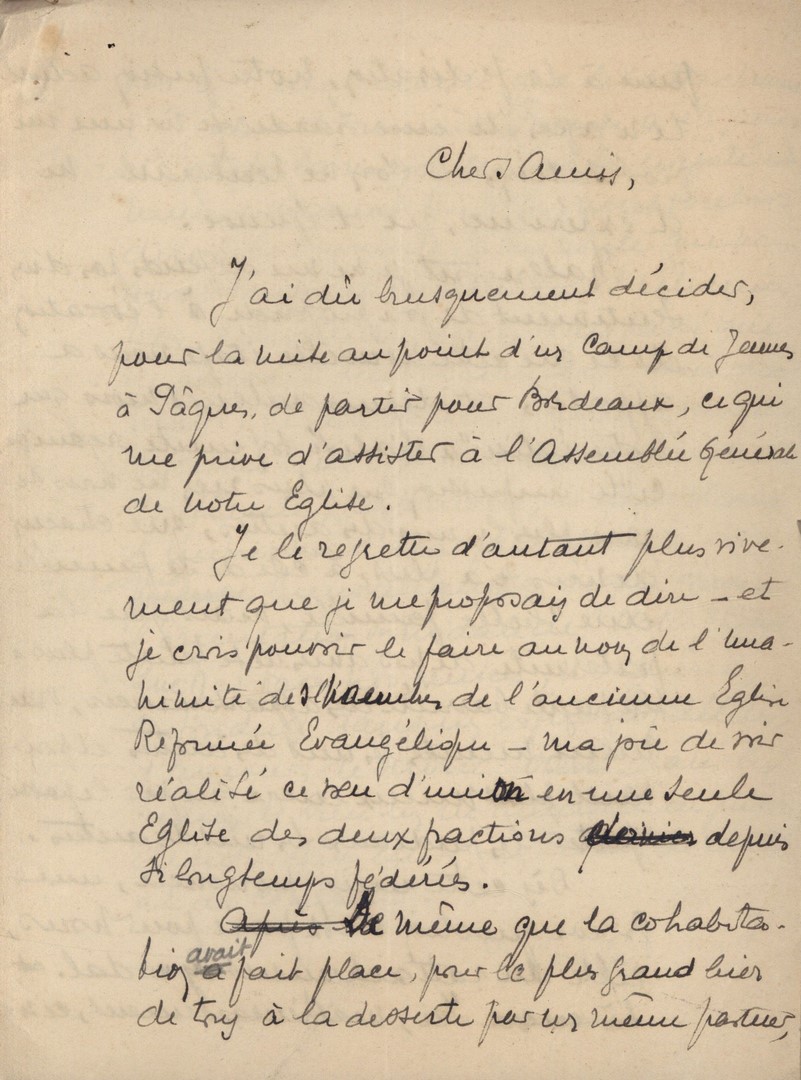 Chers Amis,
J'ai dû brusquement décider,
pour la mise au point d'un Camp de Jeunes
à Pâques, de partir pour Bordeaux, ce qui
me prive d'assister à l'Assemblée Générale
de notre Eglise.
Je le regrette d'autant plus vive-
ment que je me proposais de dire - et
je crois pouvoir le faire au nom de l'una-
nimité des membres de l'ancienne Eglise
Réformée Evangélique - ma joie de voir
réalisé ce vœu d'union en une seule
Eglise des deux fractions depuis
si longtemps fédérées.
Après De même que la cohabita-
tion avait a fait place, pour le plus grand bien
de tous à la desserte par un même pasteur,